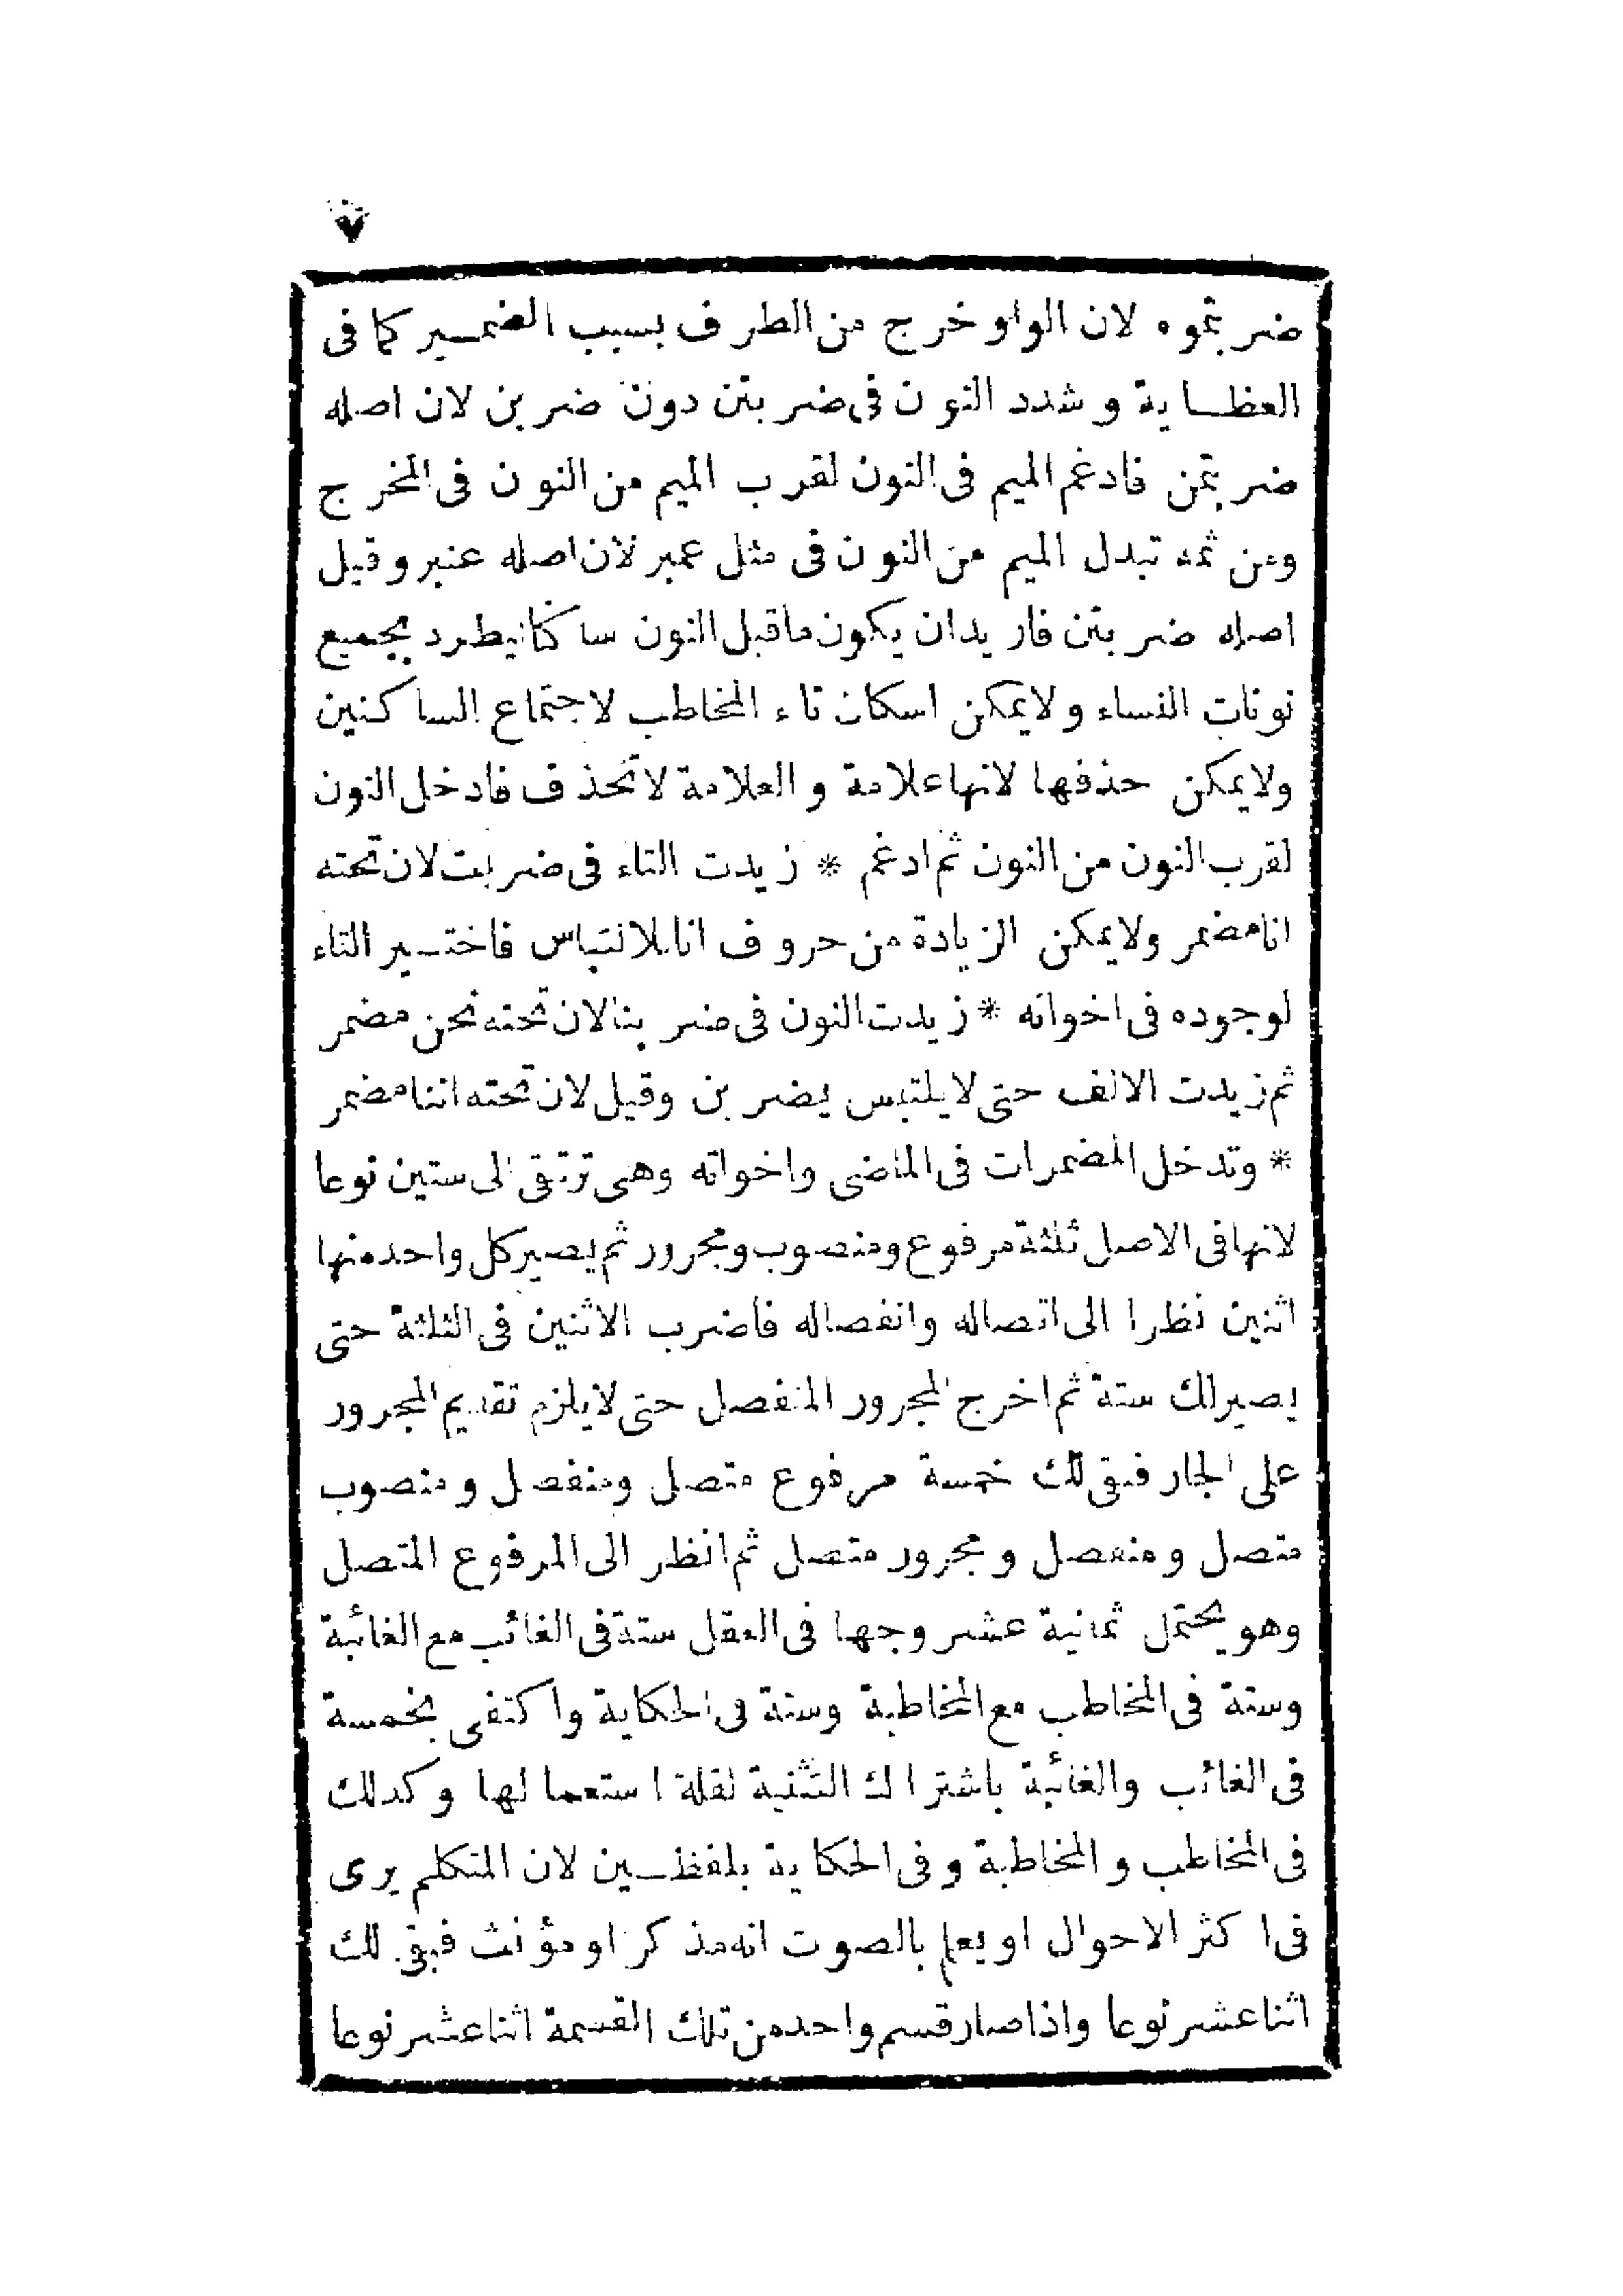 ٧
ضربتموه لان الواو خرج من الطرف بسبب الضمير كما فى
العظاية و شدد النون فى ضربتن دون ضربن لان اصله
ضربتمن فادغم الميم فى النون لقرب الميم من النون فى المخرج
ومن ثمه تبدل الميم من النون فى مثل عمبر لان اصله عنبر وقيل
اصله ضربتن فاريد ان يكون ماقبل النون ساكنا ليطرد بجميع
نونات النساء ولا يمكن اسكان تاء المخاطب لاجتماع الساكنين
ولا يمكن حذفها لانها علامة و العلامة لا تحذف فادخل النون
لقرب النون من النون ثم ادغم * زيدت التاء فى ضربت لان تحته
انا مضمر ولا يمكن الزيادة من حروف انا للالتباس فاختير التاء
لوجوده فى اخواته * زيدت النون فى ضربنا لان تحته نحن مضمر
ثم زيدت الالف حتى لا يلتبس بضربن وقيل لان تحته اننا مضمر
* وتدخل المضمرات فى الماضى واخواته وهى ترتقى الى ستين نوعا
لانها فى الاصل ثلثة مرفوع ومنصوب ومجرور ثم يصير كل واحد منها
اثنين نظرا الى اتصاله وانفصاله فاضرب الاثنين فى الثلثة حتى
يصير لك ستة ثم اخرج المجرور المنفصل حتى لا يلزم تقديم المجرور
على الجار فبقى لك خمسة مرفوع متصل ومنفصل و منصوب
متصل و منفصل و مجرور متصل ثم انظر الى المرفوع المتصل
وهو يحتمل ثمانية عشر وجها فى العقل ستة فى الغائب مع الغائبة
وستة فى المخاطب مع المخاطبة وستة فى الحكاية واكتفى بخمسة
فى الغائب والغائبة باشتراك التثنية لقلة استعمالها وكذلك
فى المخاطب و المخاطبة و فى الحكاية بلفظين لان المتكلم يرى
فى اكثر الاحوال او يعلم بالصوت انه مذكر او مؤنث فبقى لك
اثنا عشر نوعا واذا صار قسم واحد من تلك القسمة اثنا عشر نوعا